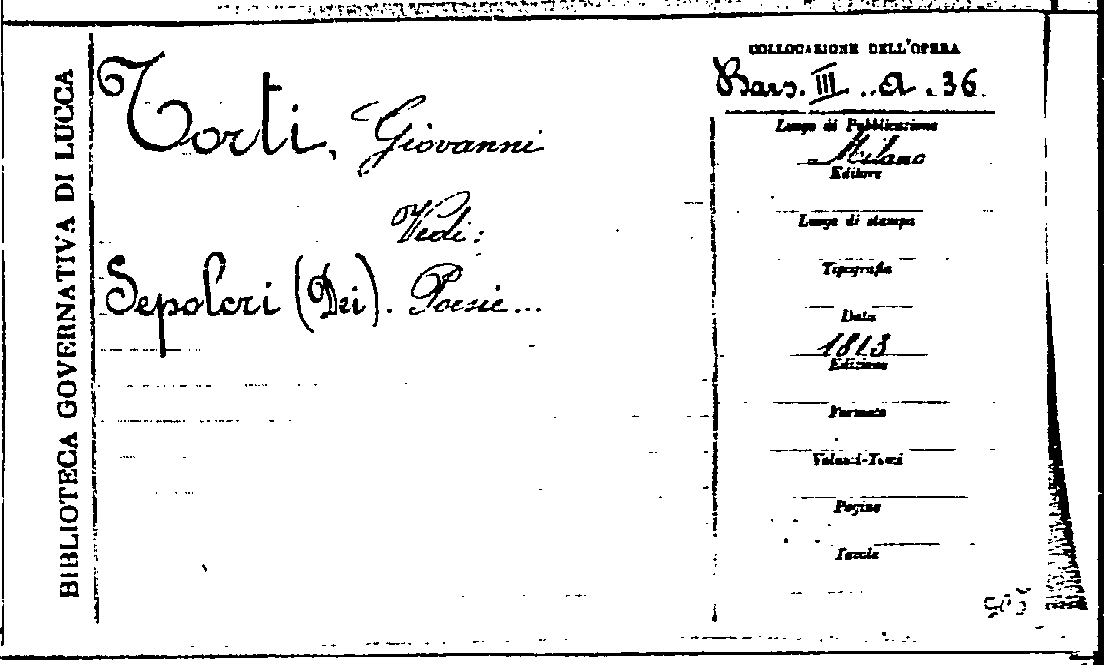 BIBLIOTECA GOVERNATIVA DI LUCCA
Torti, Giovanni
Vedi:
Sepolcri (Dei). Poesie...
COLLOCAZIONE DELL'OPERA
Bars. III. A. 36.
Luogo di Pubblicazione
Milano
Editore
Luogo di stampa
Tipografia
Data
1813
Edizione
Formato
Volumi-Tomi
Pagine
Tavole